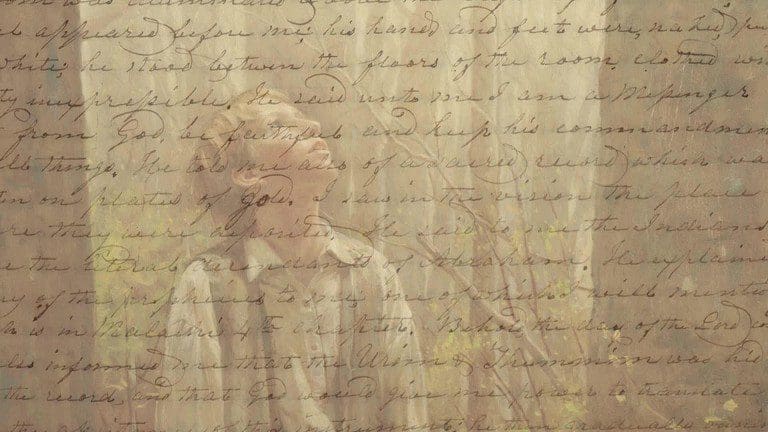 was illuminated above the
appeared before me; his hands and feet were naked pu
white; he stood between the floors of the room, clothed wi
ty inexpressible. He said unto me I am a Messenger
from God, be faithful and keep his commandmen
ll things. He told me also of a sacred record which wa
en on plates of Gold. I saw in the vision the place
re they were deposited. He said to me the Indians
e the literal descendants of Abraham. He explain
y of the prophecies to me; one of which I will mentio
h is in Malachi 4th chapter. Behold the day of the Lord co
lso informed me that the Urim & Thummim was hid
the record, and that God would give me power to translate
of this instrument; he then gradually vanis